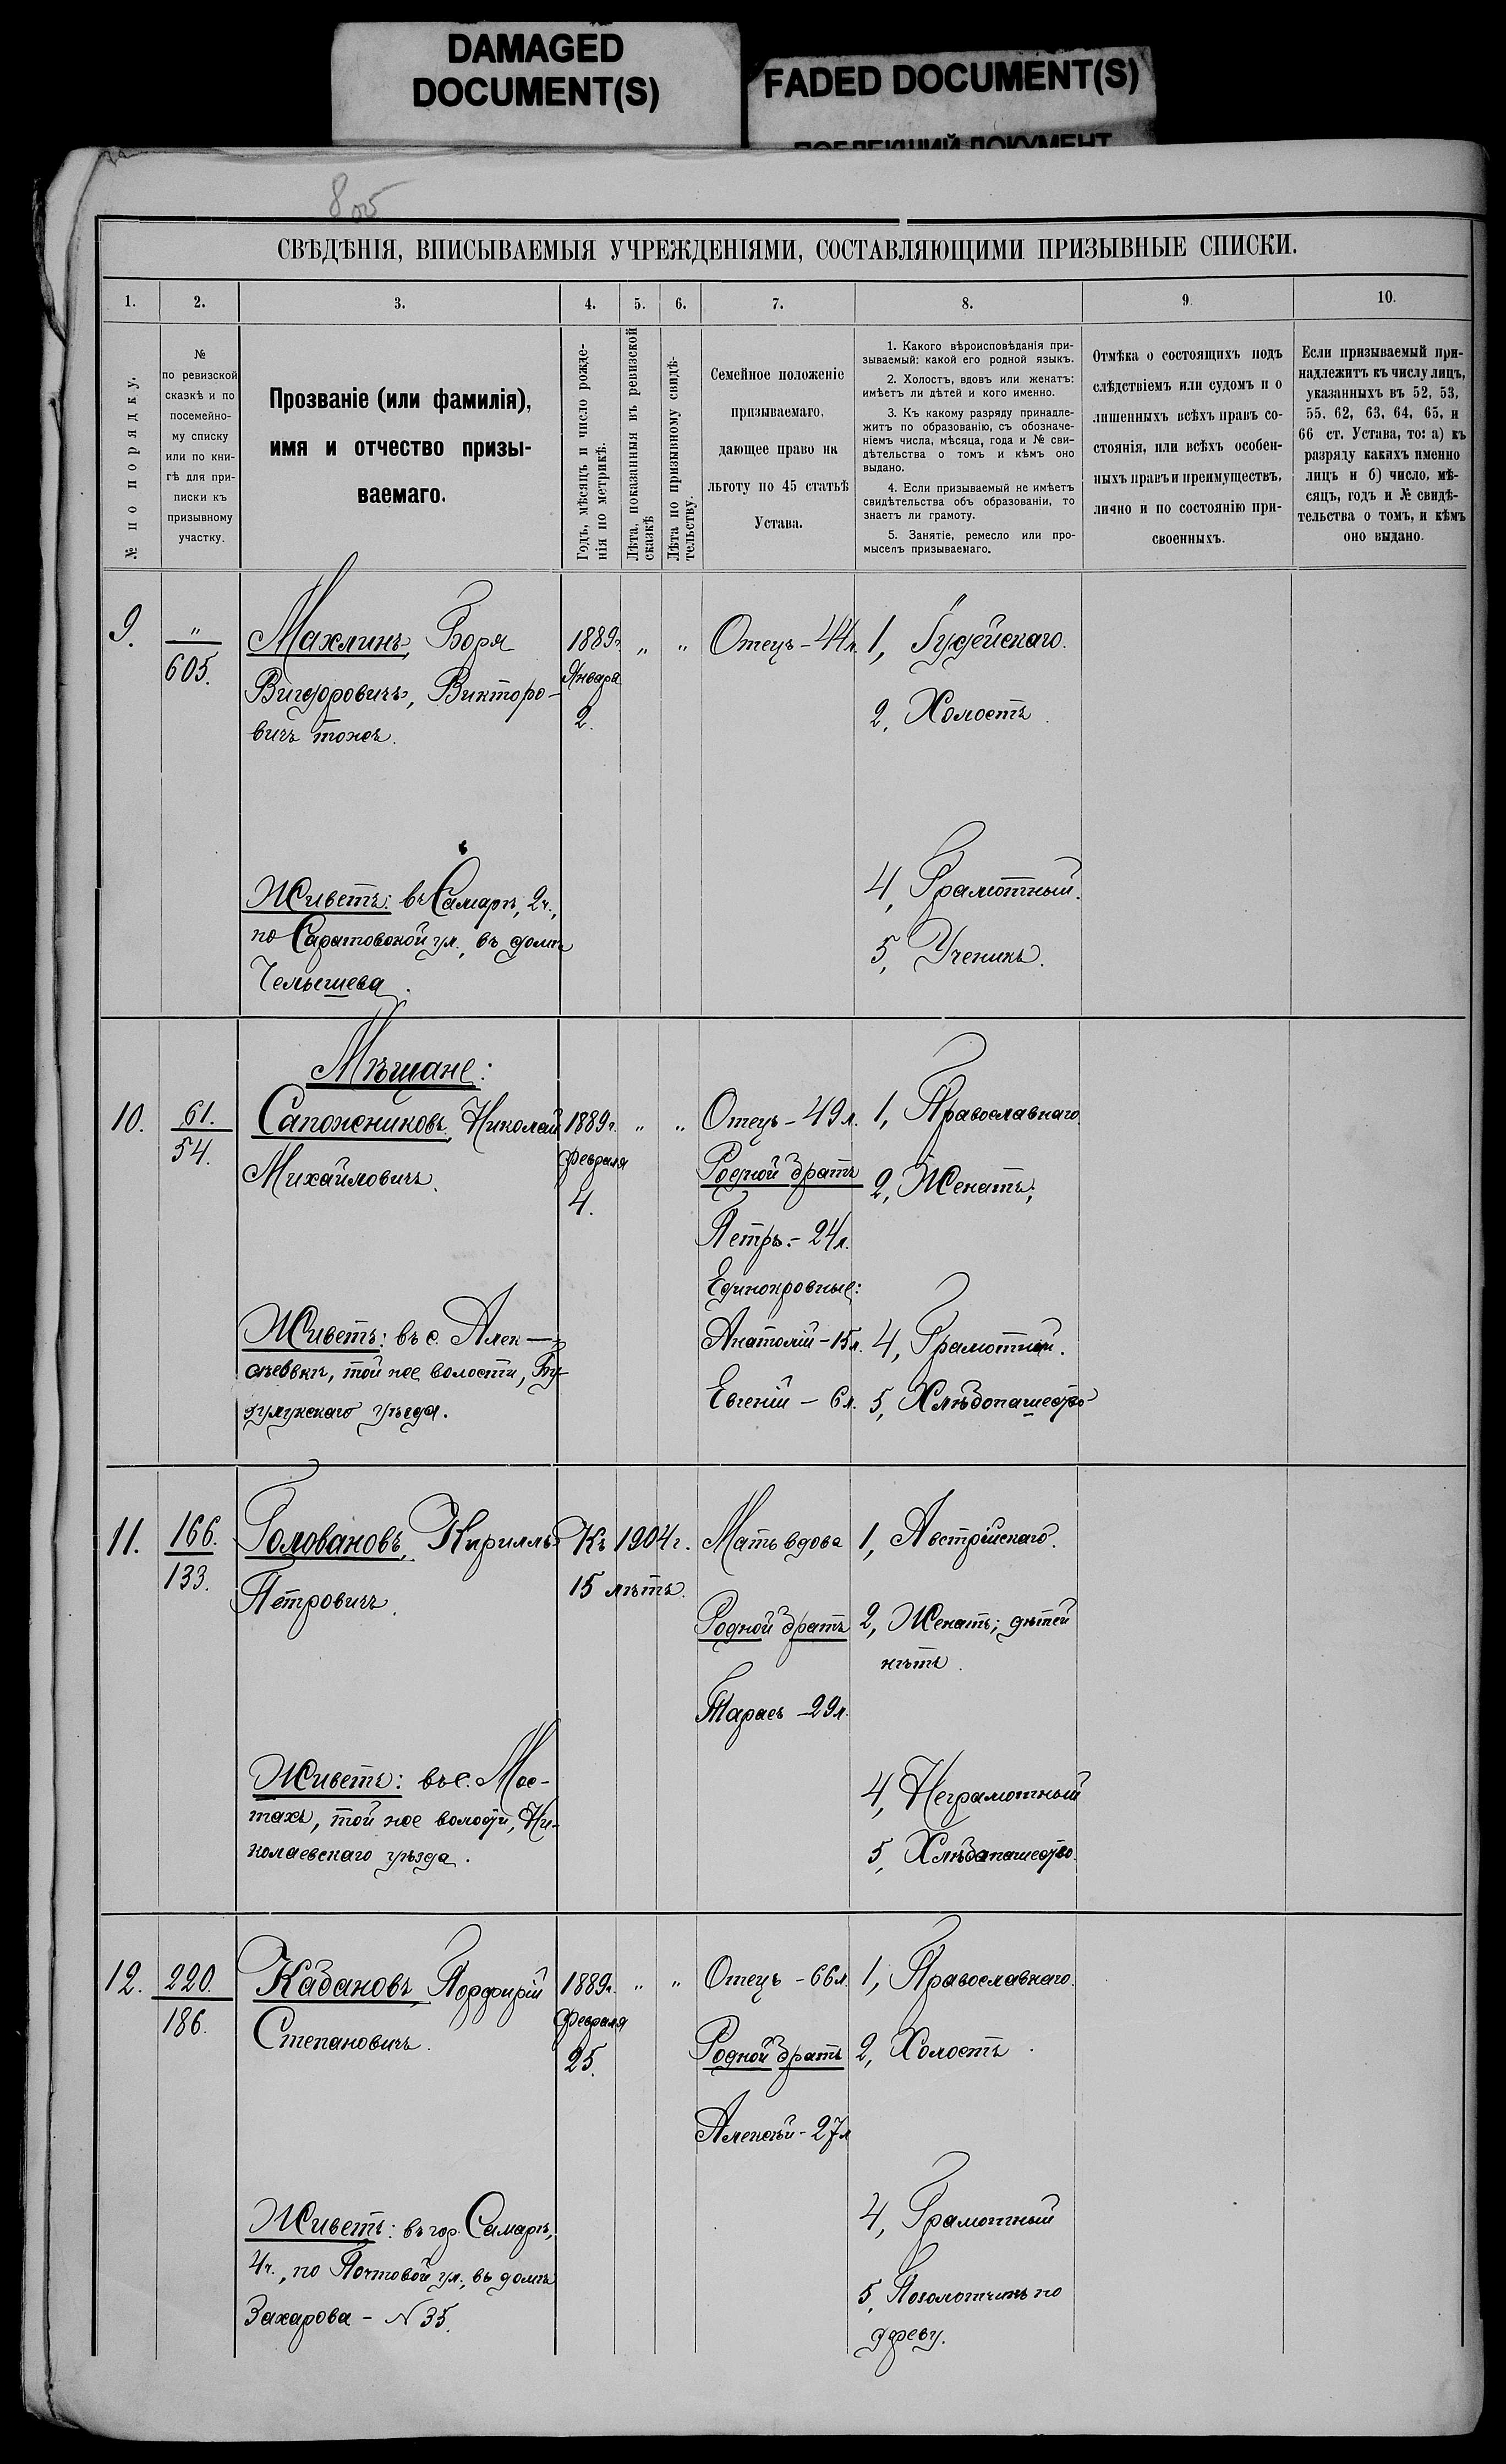 DAMAGED
DOCUMENT(S)
FADED DOCUMENT(S)
ПОБЛЕКШИЙ ДОКУМЕНТ
СВѢДѢНІЯ, ВПИСЫВАЕМЫЯ УЧРЕЖДЕНІЯМИ, СОСТАВЛЯЮЩИМИ ПРИЗЫВНЫЕ СПИСКИ.
1.
2.
3.
4.
5.
6.
7.
8.
9.
10.
№ по порядку.
№
по ревизской
сказкѣ и по
посемейно-
му списку
или по кни-
гѣ для при-
писки къ
призывному
участку.
Прозваніе (или фамилія),
имя и отчество призы-
ваемаго.
Годъ, мѣсяцъ и число рожде-
нія по метрикѣ.
Лѣта, показанныя въ ревизской
сказкѣ
Лѣта по призывному свидѣ-
тельству.
Семейное положеніе
призываемаго,
дающее право на
льготу по 45 статьѣ
Устава.
1. Какого вѣроисповѣданія при-
зываемый: какой его родной языкъ.
2. Холостъ, вдовъ или женатъ:
имѣетъ ли дѣтей и кого именно.
3. Къ какому разряду принадле-
житъ по образованію, съ обозначе-
ніемъ числа, мѣсяца, года и № сви-
дѣтельства о томъ и кѣмъ оно
выдано.
4. Если призываемый не имѣетъ
свидѣтельства объ образованіи, то
знаетъ ли грамоту.
5. Занятіе, ремесло или про-
мыселъ призываемаго.
Отмѣка о состоящихъ подъ
слѣдствіемъ или судомъ и о
лишенныхъ всѣхъ правъ со-
стоянія, или всѣхъ особен-
ныхъ правъ и преимуществъ,
лично и по состоянію при-
своенныхъ.
Если призываемый при-
надлежитъ къ числу лицъ,
указанныхъ въ 52, 53,
55, 62, 63, 64, 65, и
66 ст. Устава, то: а) къ
разряду какихъ именно
лицъ и б) число, мѣ-
сяцъ, годъ и № свидѣ-
тельства о томъ, и кѣмъ
оно выдано.
9.
"
605.
Махлинъ, Боря
Вигдоровичъ, Викторо-
вичъ тожъ.
Живетъ: въ Самарѣ, 2ч.,
по Саратовской ул., въ домѣ
Челышева.
1889г.
Января
2.
"
"
Отецъ - 44л.
1, Іудейскаго.
2, Холостъ.
4, Грамотный.
5, Ученикъ.
Мѣщане:
10.
61.
54.
Сапожниковъ, Николай
Михайловичъ.
Живетъ: въ с. Алек-
сѣевкѣ, той же волости, Бу-
зулукскаго уѣзда.
1889г.
Февраля
4.
"
"
Отецъ - 49л.
Родной братъ
Петръ - 24л.
Единокровные:
Анатолій - 15л.
Евгеній - 6л.
1, Православнаго.
2, Женатъ;
4, Грамотный.
5, Хлѣбопашество
11.
166.
133.
Головановъ, Кириллъ
Петровичъ.
Живетъ: въ с. Мос-
тахъ, той же волости, Ни-
колаевскаго уѣзда.
Къ 1904г.
15 лѣтъ.
Мать вдова
Родной братъ
Тарасъ - 29л.
1, Австрійскаго.
2, Женатъ; дѣтей
нѣтъ.
4, Неграмотный
5, Хлѣбопашество.
12.
220.
186.
Кабановъ, Порфирій
Степановичъ.
Живетъ: въ гор. Самарѣ,
4ч., по Почтовой ул., въ домѣ
Захарова - № 35.
1889г.
Февраля
25.
"
"
Отецъ - 66л.
Родной братъ
Алексѣй - 27л
1, Православнаго.
2, Холостъ.
4, Грамотный
5, Позолотчикъ по
древу.